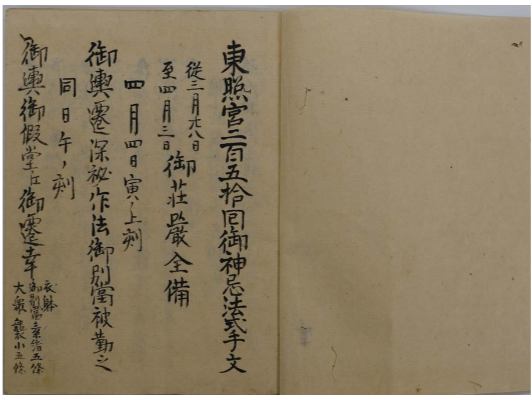 東照宮二百五拾回御神忌法式手文
従三月廿八日
至四月三日 御荘嚴全備
四月四日寅ノ上刻
御輿遷深秘作法御別當被勤之
同日午ノ刻
御輿御假堂江御遷幸
衣躰
御別當素絹五條
大衆 小五條